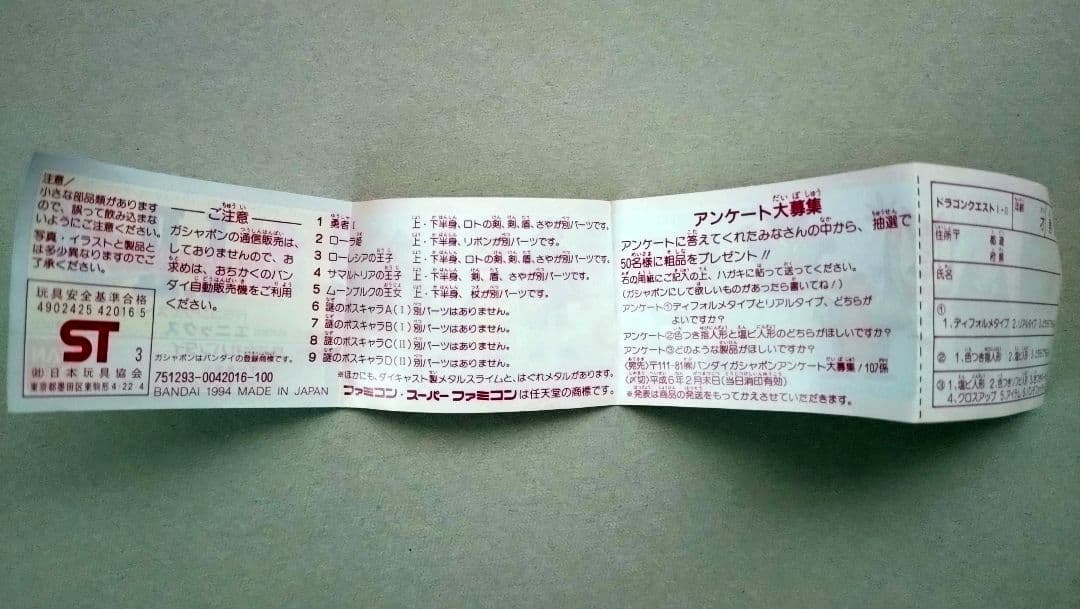 注意/
小さな部品類があります
ので、誤って飲み込まな
いようにご注意ください。
写真・イラストと製品と
は多少異なりますのでご
了承ください。
玩具安全基準合格
4902425 42016 5
ST 3
㈳日本玩具協会
東京都墨田区東駒形4-22-4
ご注意
ガシャポンの通信販売は、
してありませんので、お
求めは、おちかくのバン
ダイ自動販売機をご利用
ください。
ガシャポンはバンダイの登録商標です。
751293-0042016-100
BANDAI 1994 MADE IN JAPAN
1 勇者I 上・下半身、ロトの剣、剣、盾、さやが別パーツです。
2 ローラ姫 上・下半身、リボンが別パーツです。
3 ローレシアの王子 上・下半身、ロトの剣、剣、盾、さやが別パーツです。
4 サマルトリアの王子 上・下半身、剣、盾、さやが別パーツです。
5 ムーンブルクの王女 上・下半身、杖が別パーツです。
6 謎のボスキャラA(I)別パーツはありません。
7 謎のボスキャラB(I)別パーツはありません。
8 謎のボスキャラC(II)別パーツはありません。
9 謎のボスキャラD(II)別パーツはありません。
※ほかにも、ダイキャスト製メタルスライムと、はぐれメタルがあります。
ファミコン・スーパーファミコンは任天堂の商標です。
アンケート大募集
アンケートに答えてくれたみなさんの中から、抽選で
50名様に粗品をプレゼント!!
右の用紙にご記入の上、ハガキに貼って送ってください。
(ガシャポンにして欲しいものがあったら書いてね!)
アンケート①ディフォルメタイプとリアルタイプ、どちらが
よいですか?
アンケート②色つき指人形と塩ビ人形のどちらがほしいですか?
アンケート③どのような製品がほしいですか?
〈宛先〉〒111-81㈱バンダイガシャポンアンケート大募集/107係
〈〆切〉平成6年2月末日(当日消印有効)
※発表は商品の発送をもってかえさせていただきます。
ドラゴンクエストI・II
年齢
才
住所〒
都道
府県
氏名
①
1.ディフォルメタイプ 2.リアルタイプ
② 1.色つき指人形 2.塩ビ人形
③ 1.塩ビ人形 2.色つき
4.クロスアップ 5.アイテム